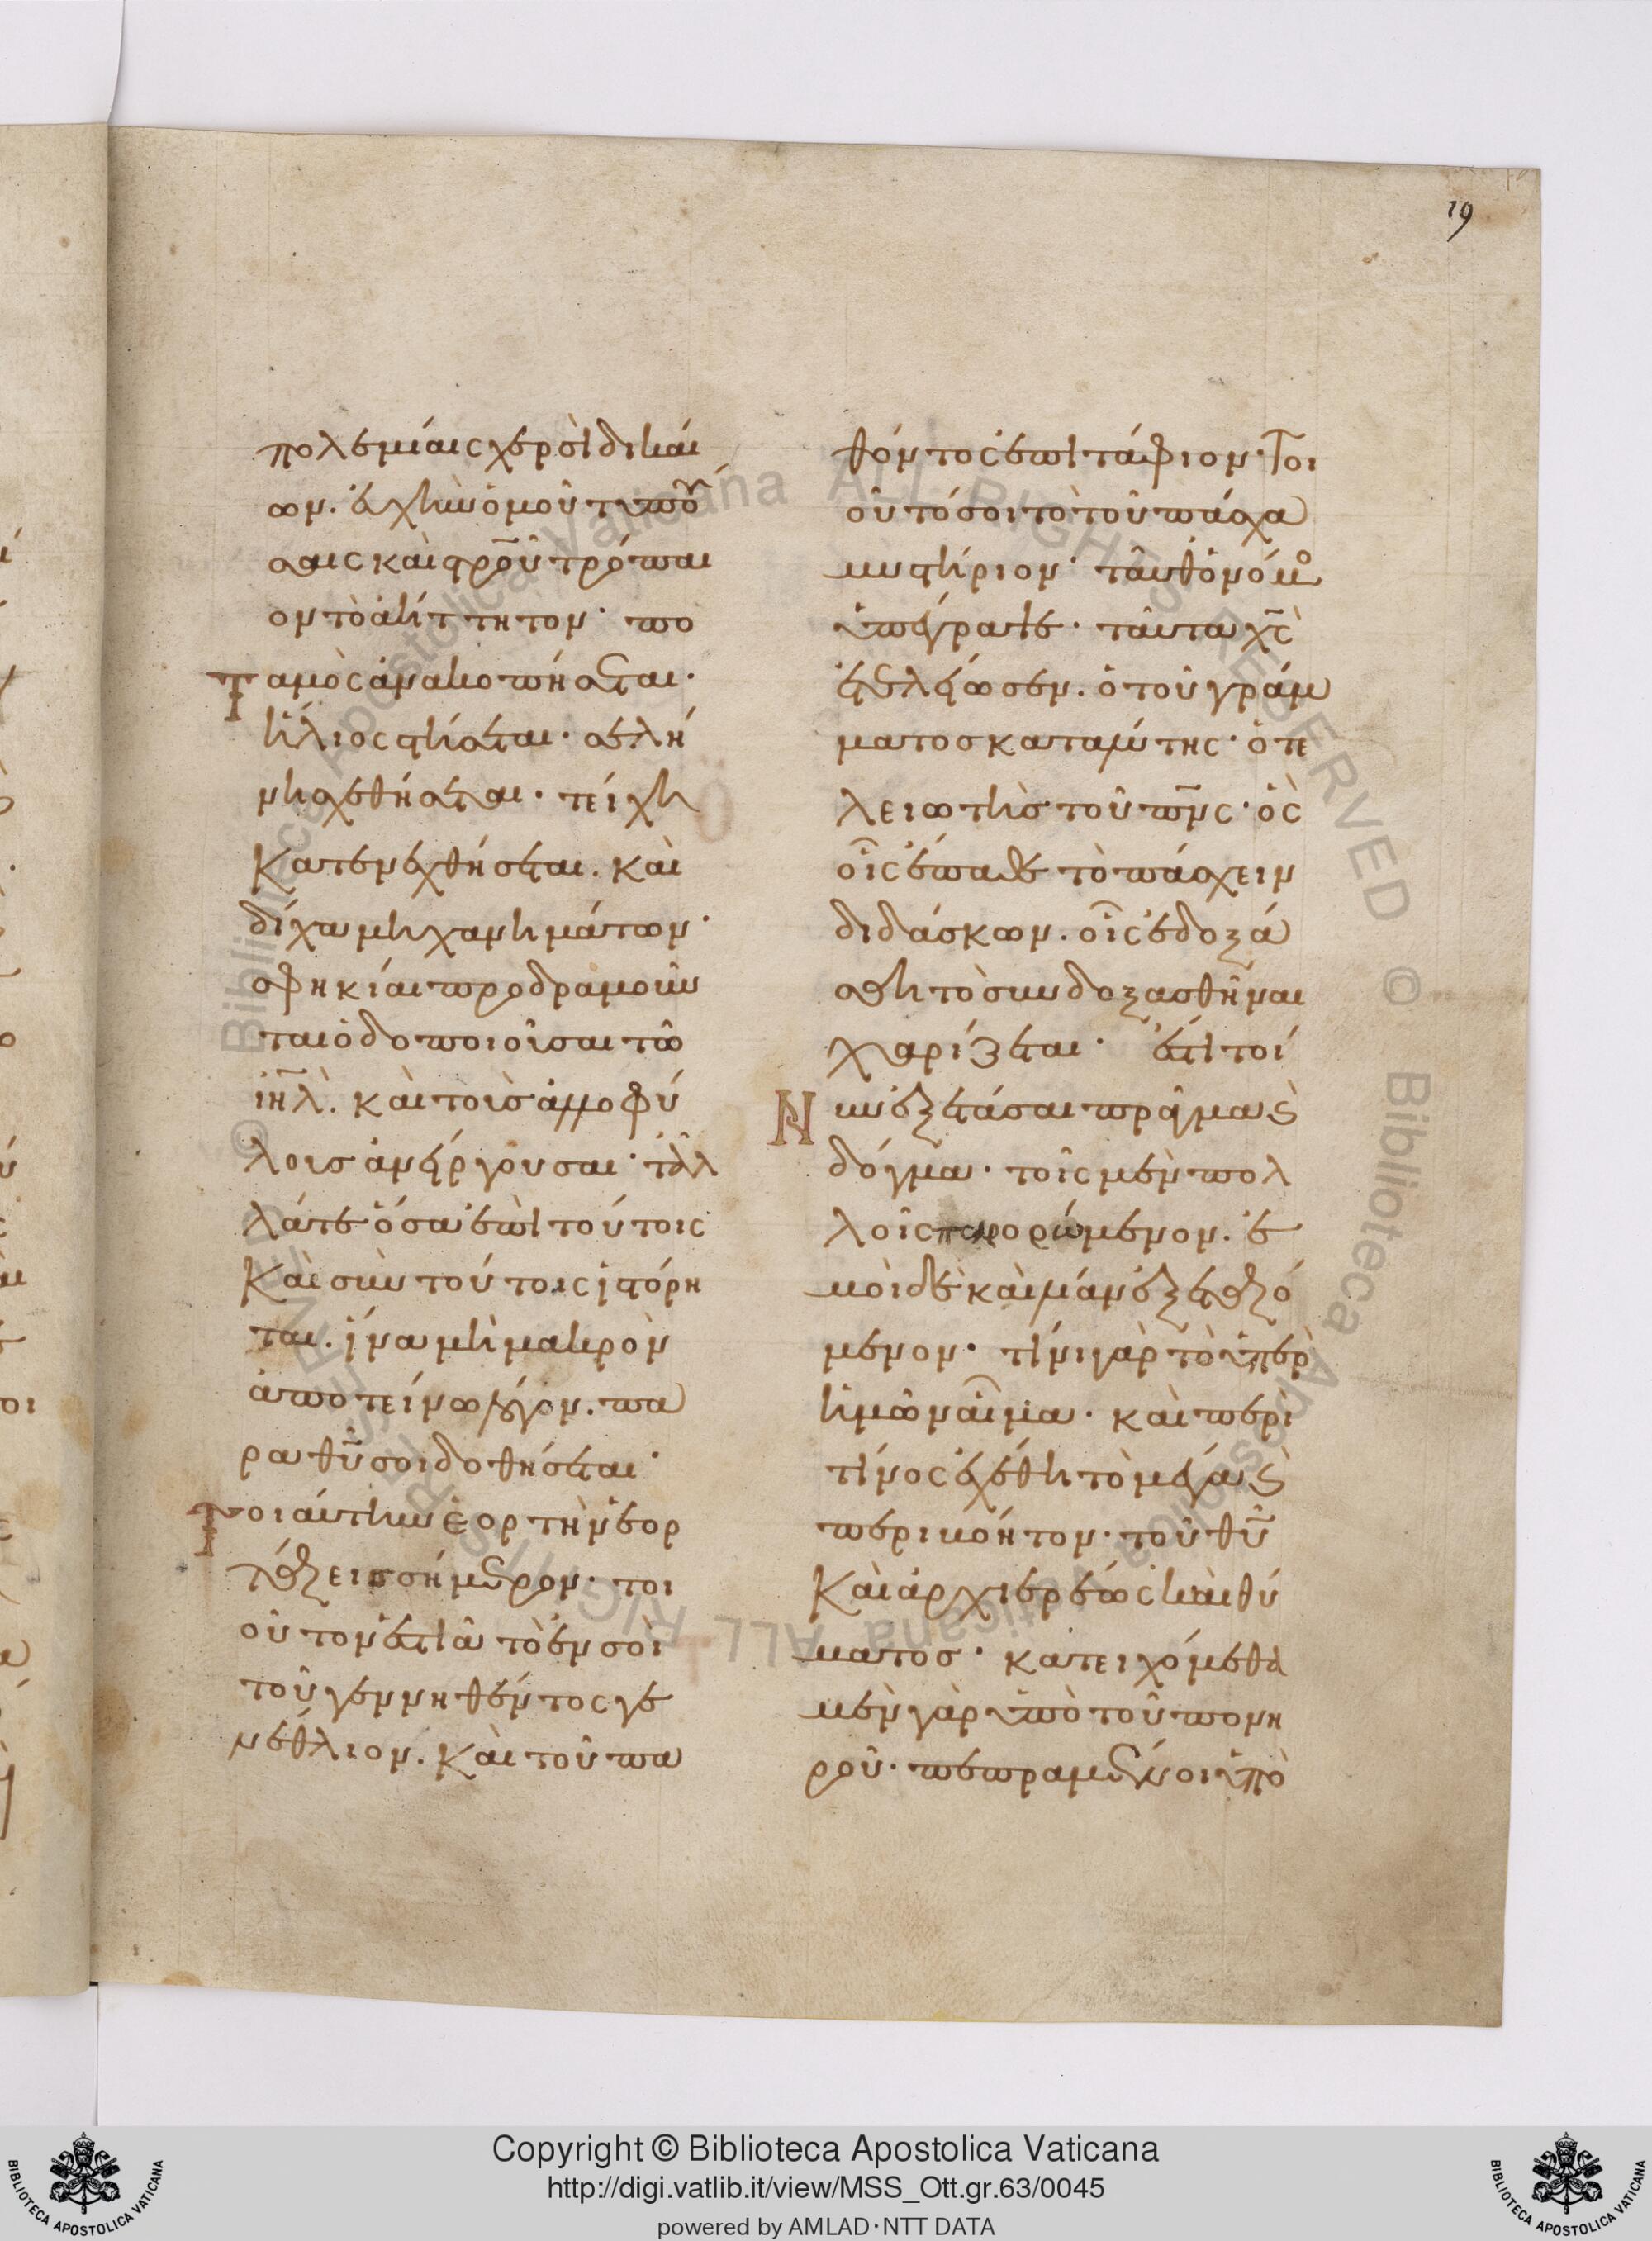 19
πολεμίαις χερσὶ δικαί
ων. ἐχὴν ὁμοῦ τυπού
σαις καὶ στ̅ροῦ τρόπαι
ον τὸ ἀήττητον· πο
Ταμὸς ἀνακοπήσεται·
ἥλιος στήσεται· σελή
νη σχεθήσεται· τείχη
κατενεχθήσεται. καὶ
δίχα μηχανημάτων·
σφηκίαι προδραμοῦν
ται ὁδοποιοῦσαι τῶ
ιη̅λ̀. καὶ τοὺσ ἀλλοφύ
λουσ ἀνείργουσαι· τἆλ
λά τε ὅσα ἐπὶ τούτοις
καὶ σὺν τούτοις ἱστόρη
ται. ἵνα μὴ μακρὸν
ἀποτείνω λόγον. πα
ρα θ̅υ̅ σοι δοθήσεται·
Τοιαύτην ἑορτὴν ἑορ
τάζεισ σήμερον· τοι
οῦτον ἑστιᾶ τὸ ἐν σοὶ
τοῦ γεννηθέντος γε
νέθλιον. καὶ τοῦ πα
θόντος ἐπιτάφιον· Τοι
οῦτό σοι τὸ τοῦ πάσχα
μυστήριον· ταῦθ ὁ νόμο
ὑπέγραψε· ταῦτα χ̅ς̀
ἐτελέωσεν. ὁ τοῦ γράμ
ματοσ καταλύτης· ὁ τε
λειωτὴσ τοῦ π̅ν̅ς· ὃς
οἷς ἔπαθε τὸ πάσχειν
διδάσκων. οἷς ἐδοξά
σθη τὸ συνδοξασθῆναι
χαρίζεται· ἔστι τοί
Νυν ἐξετάσαι πρᾶγμα κ̀
δόγμα· τοῖς μὲν πολ
λοῖς παρορώμενον. ἐ
μοὶ δὲ καὶ λίαν ἐξεταζό
μενον· τίνι γὰρ τὸ ὑπὲρ
ἡμῶν αἷμα· καὶ περὶ
τίνος ἐχέθη τὸ μέγα κ̀
περιβόητον· τοῦ θ̅υ̅
καὶ ἀρχιερέως καὶ θύ
ματοσ· κατειχόμεθα
μὲν γὰρ ὑπὸ τοῦ πονη
ροῦ· πεπραμένοι ὑπὸ
© Biblioteca Apostolica Vaticana ALL RIGHTS RESERVED
Copyright © Biblioteca Apostolica Vaticana
http://digi.vatlib.it/view/MSS_Ott.gr.63/0045
powered by AMLAD·NTT DATA
BIBLIOTECA APOSTOLICA VATICANA
BIBLIOTECA APOSTOLICA VATICANA